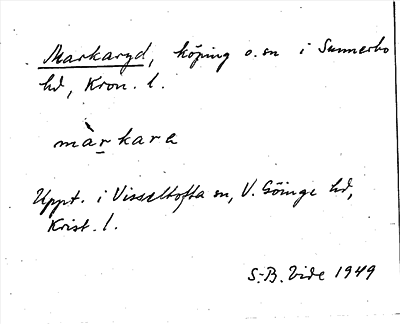 Markaryd, köping o. sn i Sunnerbo
hd, Kron. l.
màrkara
Uppt. i Visseltofta sn, V. Göinge hd,
Krist. l.
S.-B. Vide 1949